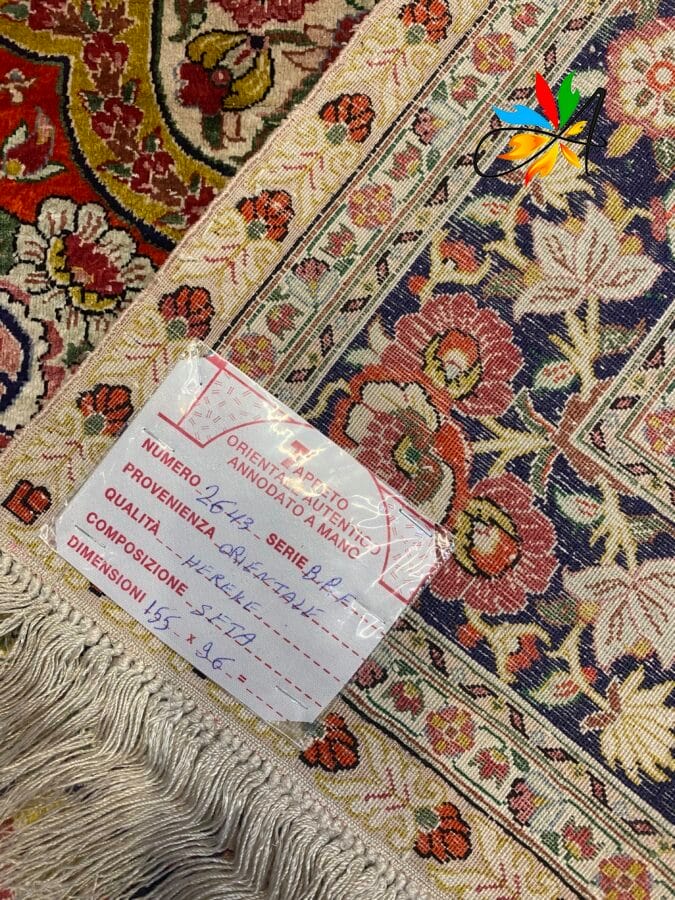 TAPPETO
ORIENTALE AUTENTICO
ANNODATO A MANO
NUMERO 2643 SERIE B.P.E.
PROVENIENZA ORIENTALE
QUALITÀ HEREKE
COMPOSIZIONE SETA
DIMENSIONI 155 x 96 =
A